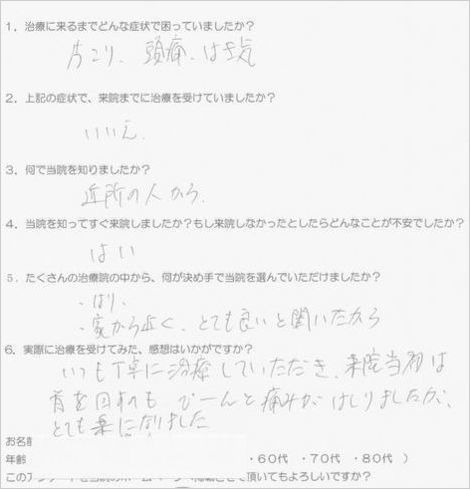 1．治療に来るまでどんな症状で困っていましたか？
肩こり、頭痛、はき気
2．上記の症状で、来院までに治療を受けていましたか？
いいえ、
3．何で当院を知りましたか？
近所の人から、
4．当院を知ってすぐ来院しましたか？もし来院しなかったとしたらどんなことが不安でしたか？
はい
5．たくさんの治療院の中から、何が決め手で当院を選んでいただけましたか？
・はり、
・家から近く、とても良いと聞いたから
6．実際に治療を受けてみた、感想はいかがですか？
いつも丁寧に治療していただき、来院当初は
首を回すのも びーんと痛みがはしりましたが、
とても楽になりました
お名前
年齢 ・60代 ・70代 ・80代 ）
このアンケートを当院のホームページへ掲載させて頂いてもよろしいですか？